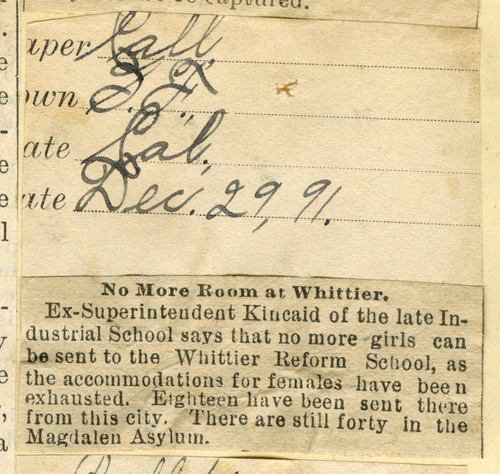 be captured.
aper Call.
own S. F.
ate Cal.
ate Dec. 29, 91.
No More Room at Whittier.
Ex-Superintendent Kincaid of the late In-
dustrial School says that no more girls can
be sent to the Whittier Reform School, as
the accommodations for females have been
exhausted. Eighteen have been sent there
from this city. There are still forty in the
Magdalen Asylum.